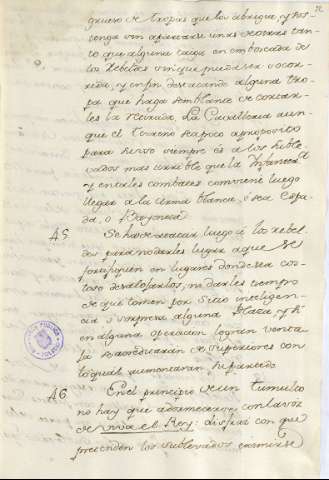 grueso de tropas que los abrigue, y sos-
tenga sin apartarse unas de otras tan-
to que alguna caiga en emboscada de
los Rebeldes sin que pueda ser socor-
rida, y en fin destacando alguna tro-
pa que haga semblante de cortar-
les la retirada. La Cavalleria aun-
que el terreno sea poco aproposito
para su uso siempre es a los suble-
vados mas terrible que la Infanteria
y en tales combates conviene luego
llegar a la arma blanca, o sea Espa-
da, o Bayoneta.
45 Se ha de atacar luego a los rebel-
des para no darles lugar a que se
fortifiquen en lugares donde sea cos-
toso desalojarlos, ni darles tiempo
de que tomen por Sitio inteligen-
cia o sorpresa alguna Plaza, y si
en alguna operacion logran venta-
ja se acreditaran de superiores con
lo qual aumentaran su partido
46 En el principio de un tumulto
no hay que adormecerse con la voz
de viva el Rey: disfraz con que
pretenden los sublevados eximirse